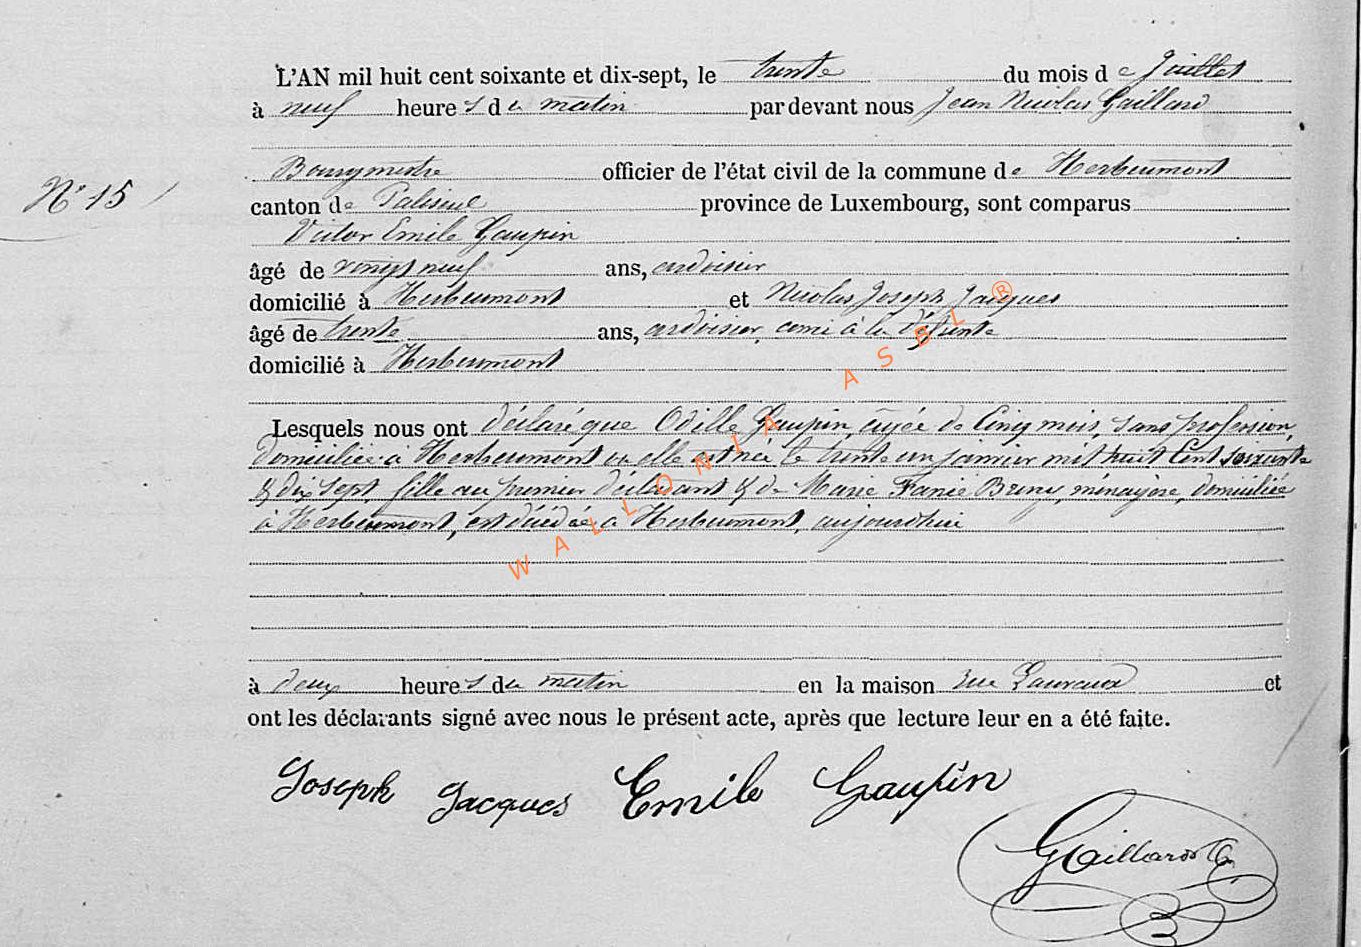 L'AN mil huit cent soixante et dix-sept, le trente du mois de Juillet
à neuf heures du matin par devant nous Jean Nicolas Gaillard
Bourgmestre officier de l'état civil de la commune de Herbeumont
N° 15
canton de Paliseul province de Luxembourg, sont comparus
Victor Emile Gaupin
âgé de vingt neuf ans, ardoisier
domicilié à Herbeumont et Nicolas Joseph Jacques
âgé de trente ans, ardoisier, ami à la défunte
domicilié à Herbeumont
Lesquels nous ont déclaré que Odille Gaupin, âgée de Cinq mois, sans profession,
domiciliée à Herbeumont où elle est née le trente un janvier mil huit Cent soixante
& dix sept, fille au premier déclarant & de Marie Fanie, ménagère, domiciliée
à Herbeumont, est décédée à Herbeumont, aujourdhui
à deux heures du matin en la maison rue et
ont les déclarants signé avec nous le présent acte, après que lecture leur en a été faite.
Joseph Jacques Emile Gaupin
Gaillard
WALLONIA ASBL ®